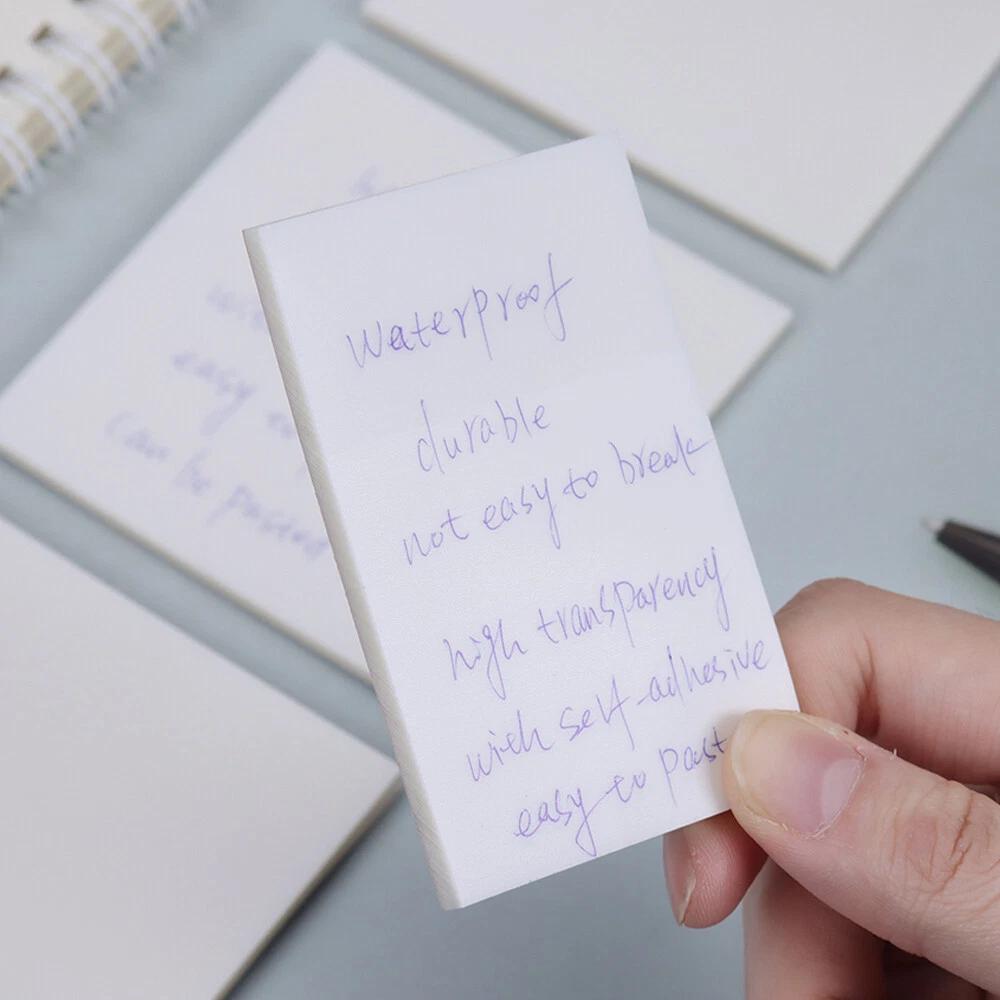 waterproof
durable
not easy to break
high transparency
with self-adhesive
easy to past
easy to
can be